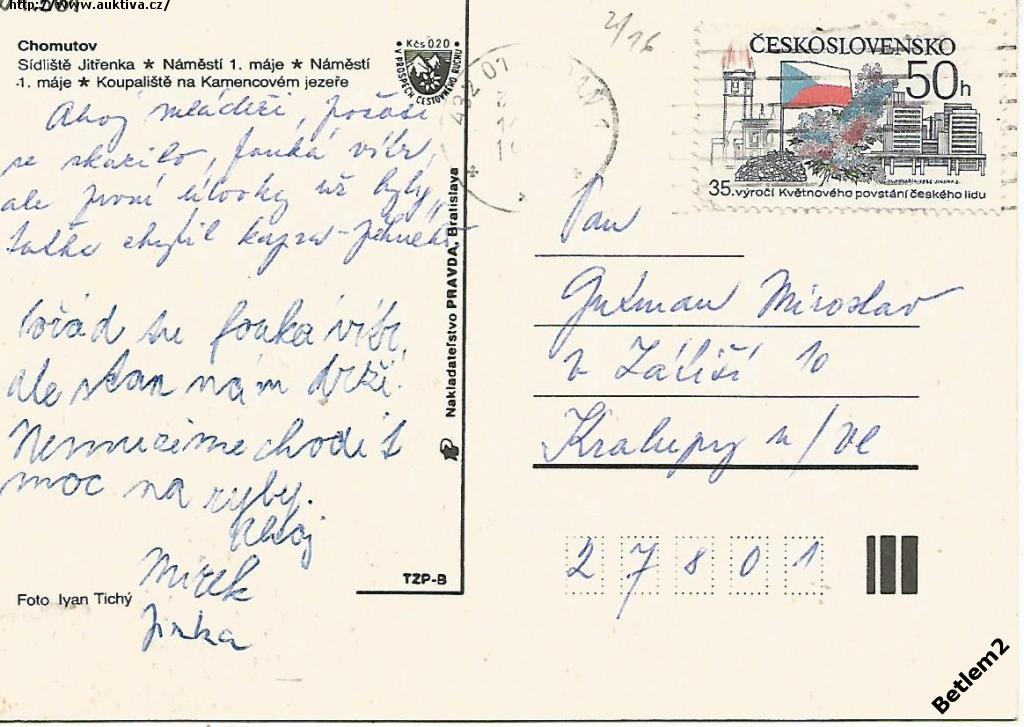 http://www.auktiva.cz/
Chomutov
Sídliště Jitřenka ★ Náměstí 1. máje ★ Náměstí
1. máje ★ Koupaliště na Kamencovém jezeře
• Kčs 020 •
V PROSPĚCH CESTOVNÉHO RUCHU
Ahoj mládeži, počasí
se skazilo, fouká vítr,
ale první úlovky už byly,
taťka chytil kapra
pořád tu fouká vítr,
ale stan nám drží.
Nemuzeme chodit
moc na ryby.
Ahoj
Mirek
Jirka
Foto Ivan Tichý
TZP-B
Nakladateľstvo PRAVDA, Bratislava
432 01
2/16
ČESKOSLOVENSKO
50h
35. výročí Květnového povstání českého lidu
Pan
Gutman Miroslav
v Zátiší 10
Kralupy n/Vl
27801
Betlem2